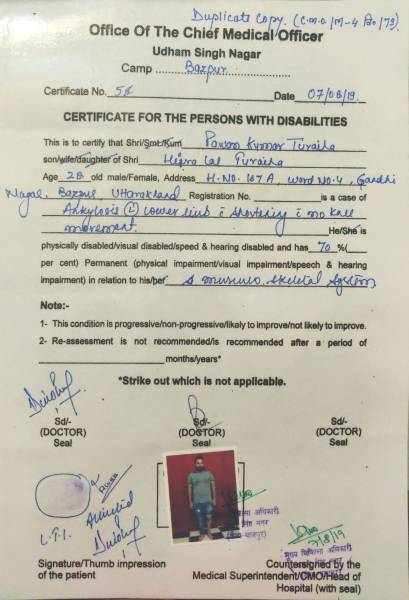 Duplicate Copy. (C.M.O/M-4
Office Of The Chief Medical Officer
Udham Singh Nagar
Camp Bazpur
Certificate No. 58 Date 07/08/19.
CERTIFICATE FOR THE PERSONS WITH DISABILITIES
This is to certify that Shri/Smt./Kum Pawan Kumar Turaiha
son/wife/daughter of Shri Heera Lal Turaiha
Age 28 old male/Female, Address H.NO. 167 A, Word NO.4, Gandhi
Nagar, Bazpur Uttarakhand Registration No. is a case of
Ankylosis (L) Lower limb c̄ shortening c̄ no knee
movement. He/She is
physically disabled/visual disabled/speed & hearing disabled and has 70 %(
per cent) Permanent (physical impairment/visual impairment/speech & hearing
impairment) in relation to his/her musculo skeletal system
Note:-
1- This condition is progressive/non-progressive/likely to improve/not likely to improve.
2- Re-assessment is not recommended/is recommended after a period of
months/years*
*Strike out which is not applicable.
Sd/- Sd/- Sd/-
(DOCTOR) (DOCTOR) (DOCTOR)
Seal Seal Seal
L.T.I. Attested
7/8/19
मुख्य चिकित्सा अधिकारी
Signature/Thumb impression Countersigned by the
of the patient Medical Superintendent/CMO/Head of
Hospital (with seal)